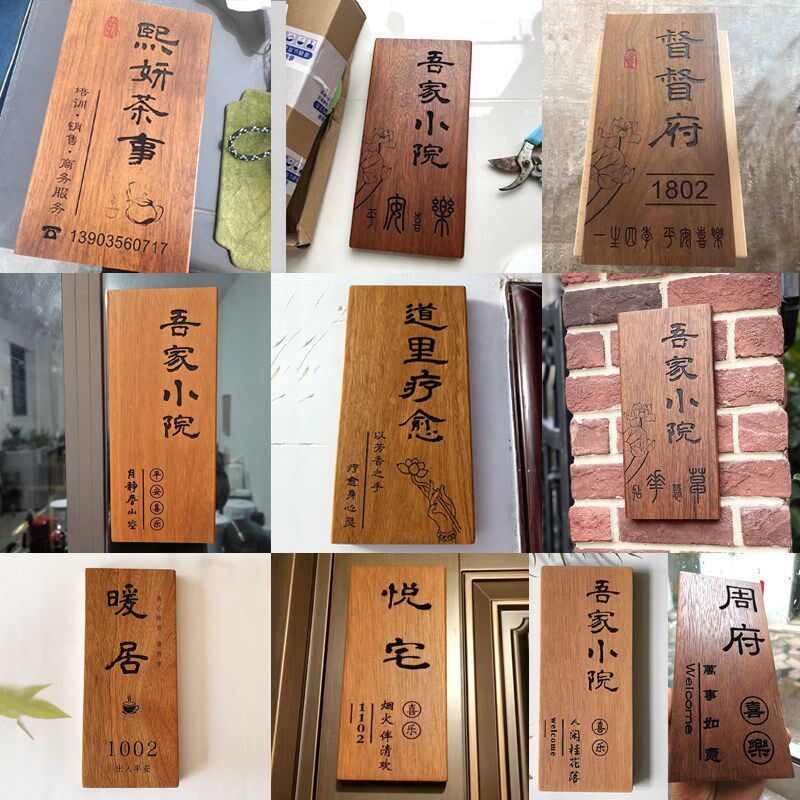 熙妍茶事
培训·销售·商务服务
☎ 13903560717
吾家小院
平安喜樂
督督府
1802
一生四季 平安喜樂
吾家小院
平安喜乐
月静春山空
道里疗愈
以芳香之手
疗愈身心灵
吾家小院
暖居
1002
出入平安
悦宅
喜乐
烟火伴清欢
1102
吾家小院
喜乐
人闲桂花落
welcome
周府
喜樂
萬事如意
Welcome